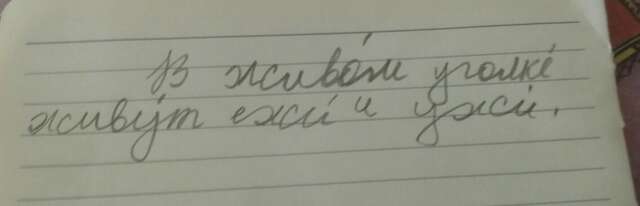 В живо́м уголке́
живу́т ежи́ и ужи́.